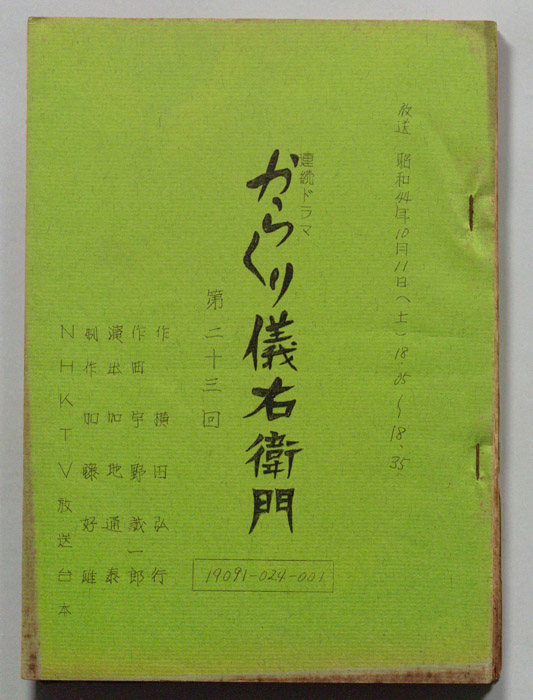 放送 昭和44年10月11日(土) 18.05~18.35
連続ドラマ
からくり儀右衛門
第二十三回
作 横田弘行
作曲 宇野誠一郎
演出 加地通泰
制作 加藤好雄
NHKTV放送台本
19091-024-001